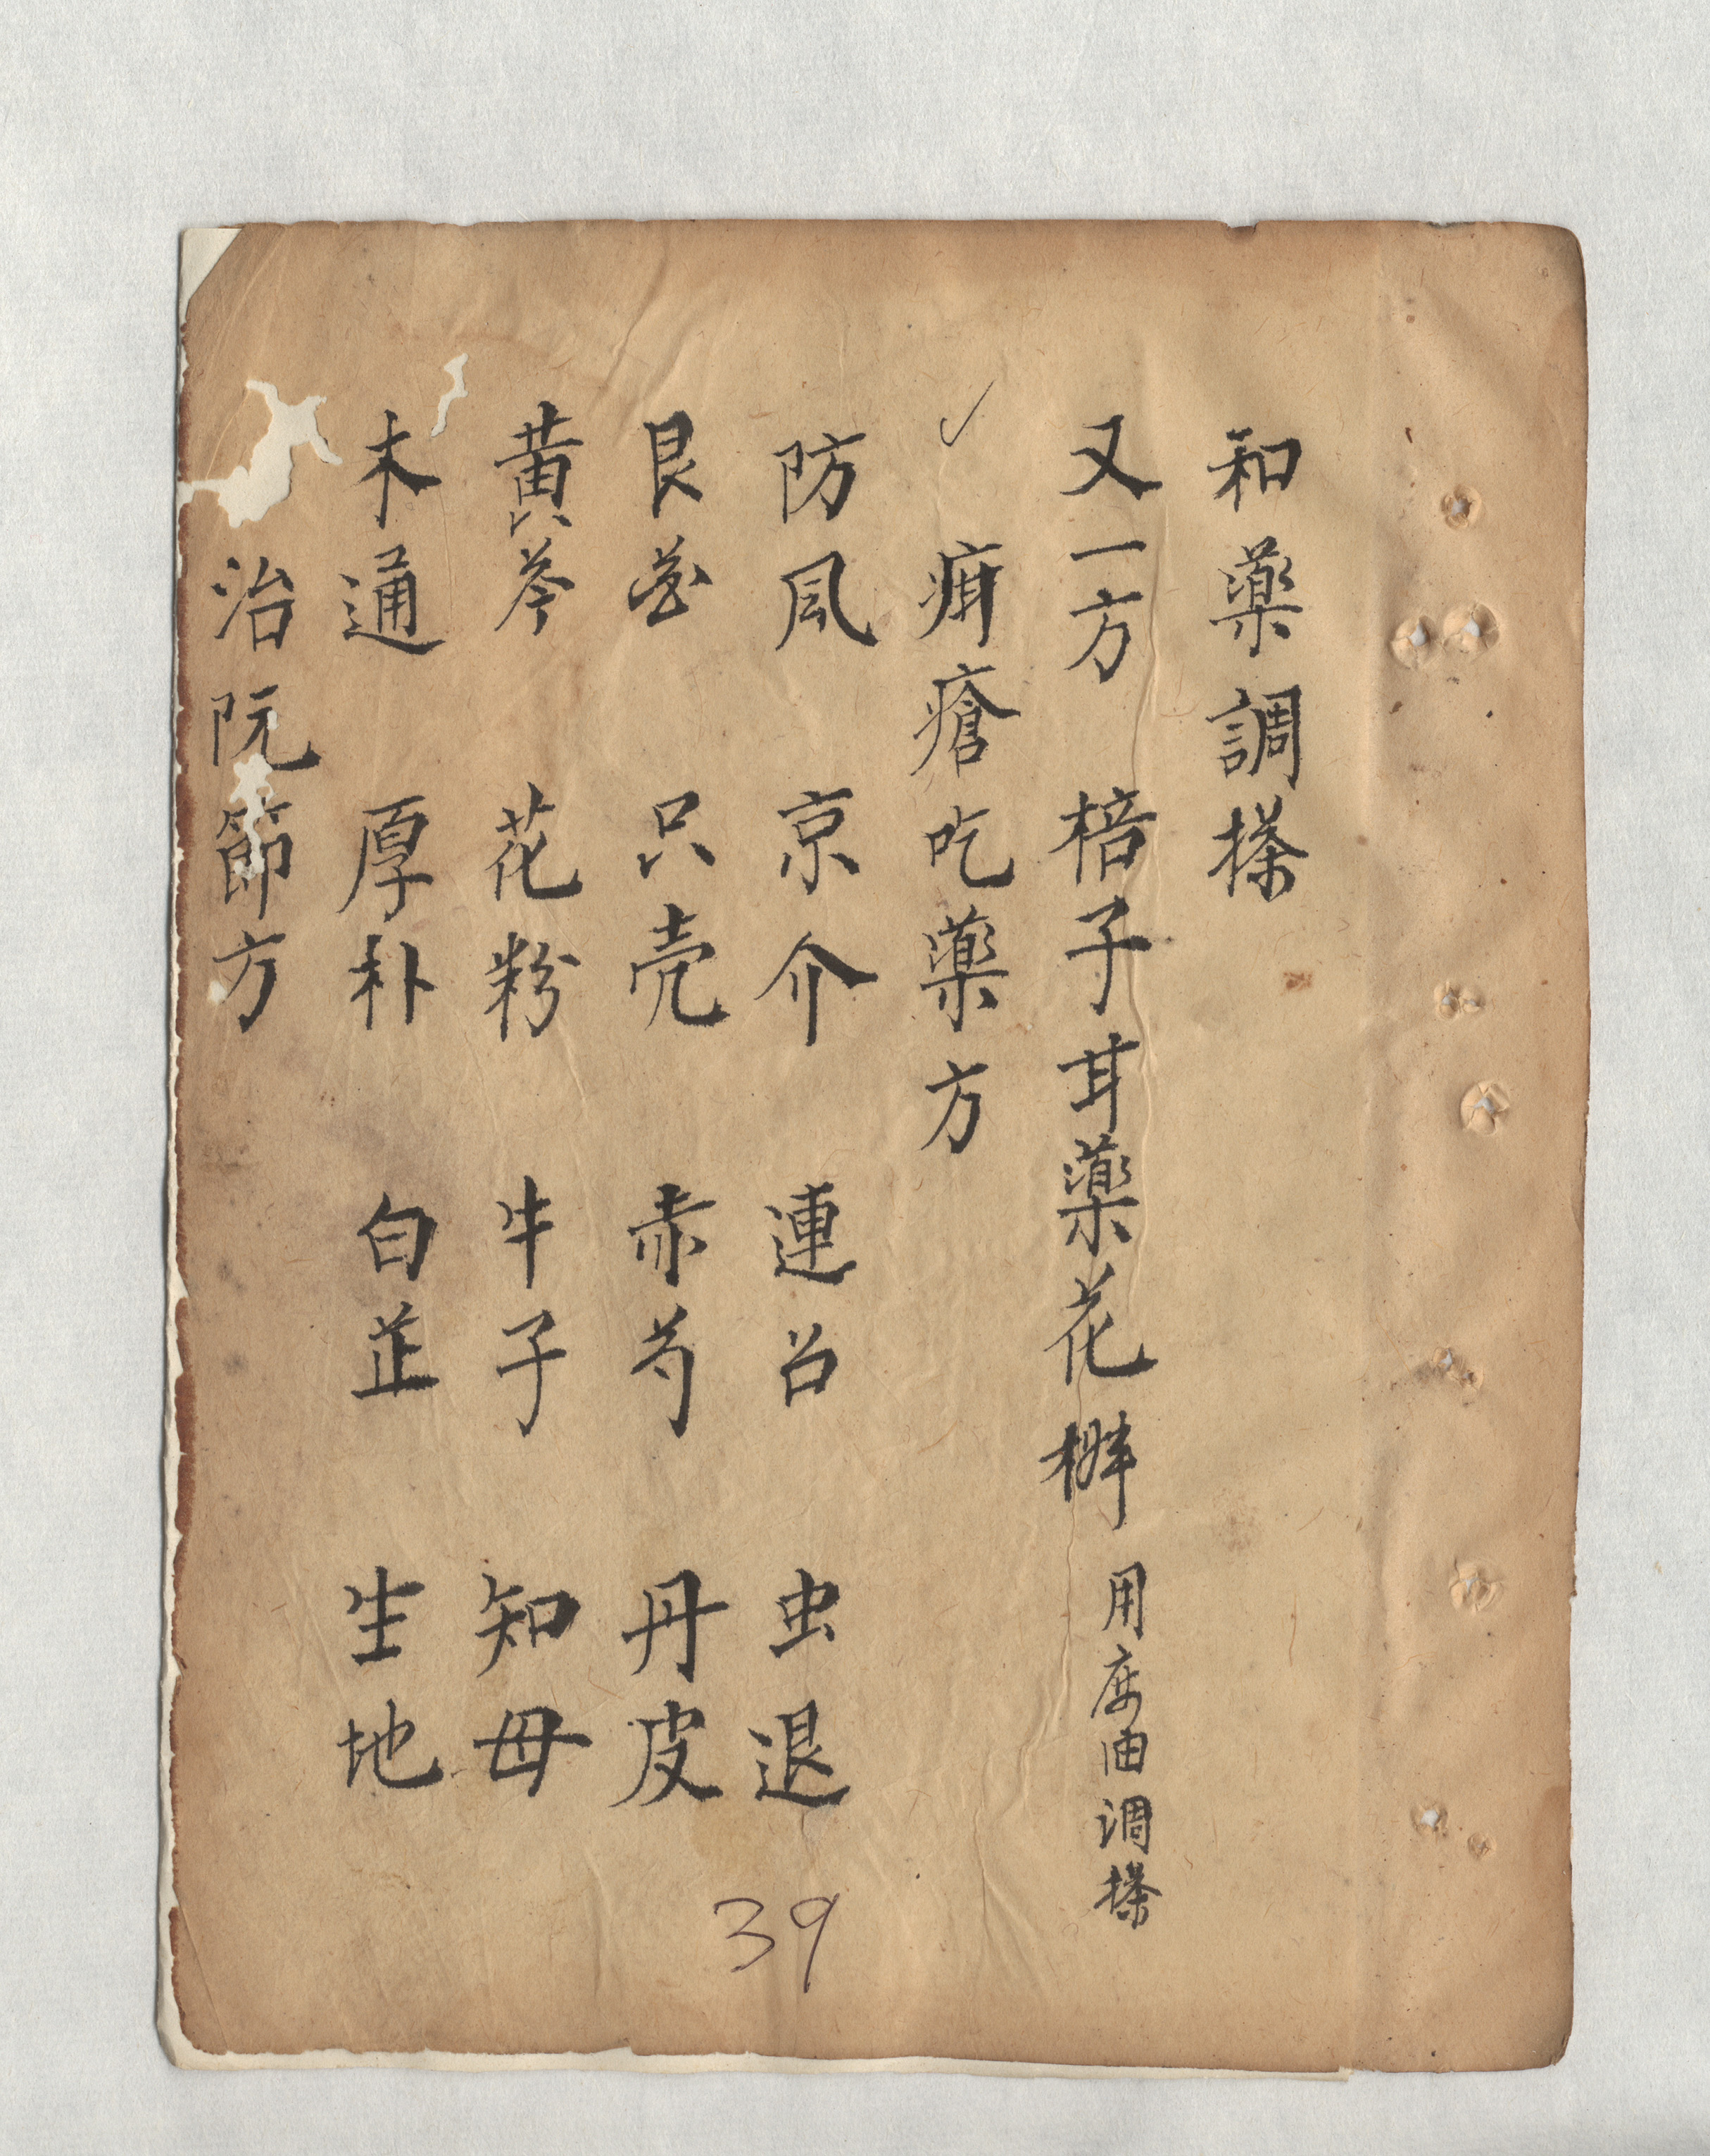 和藥調搽
又一方 棓子耳藥花椒 用麻油调搽
疳瘡吃藥方
防風 京介 連召 虫退
艮花 只壳 赤芍 丹皮
黄芩 花粉 牛子 知母
木通 厚朴 白芷 生地
治阮節方
39